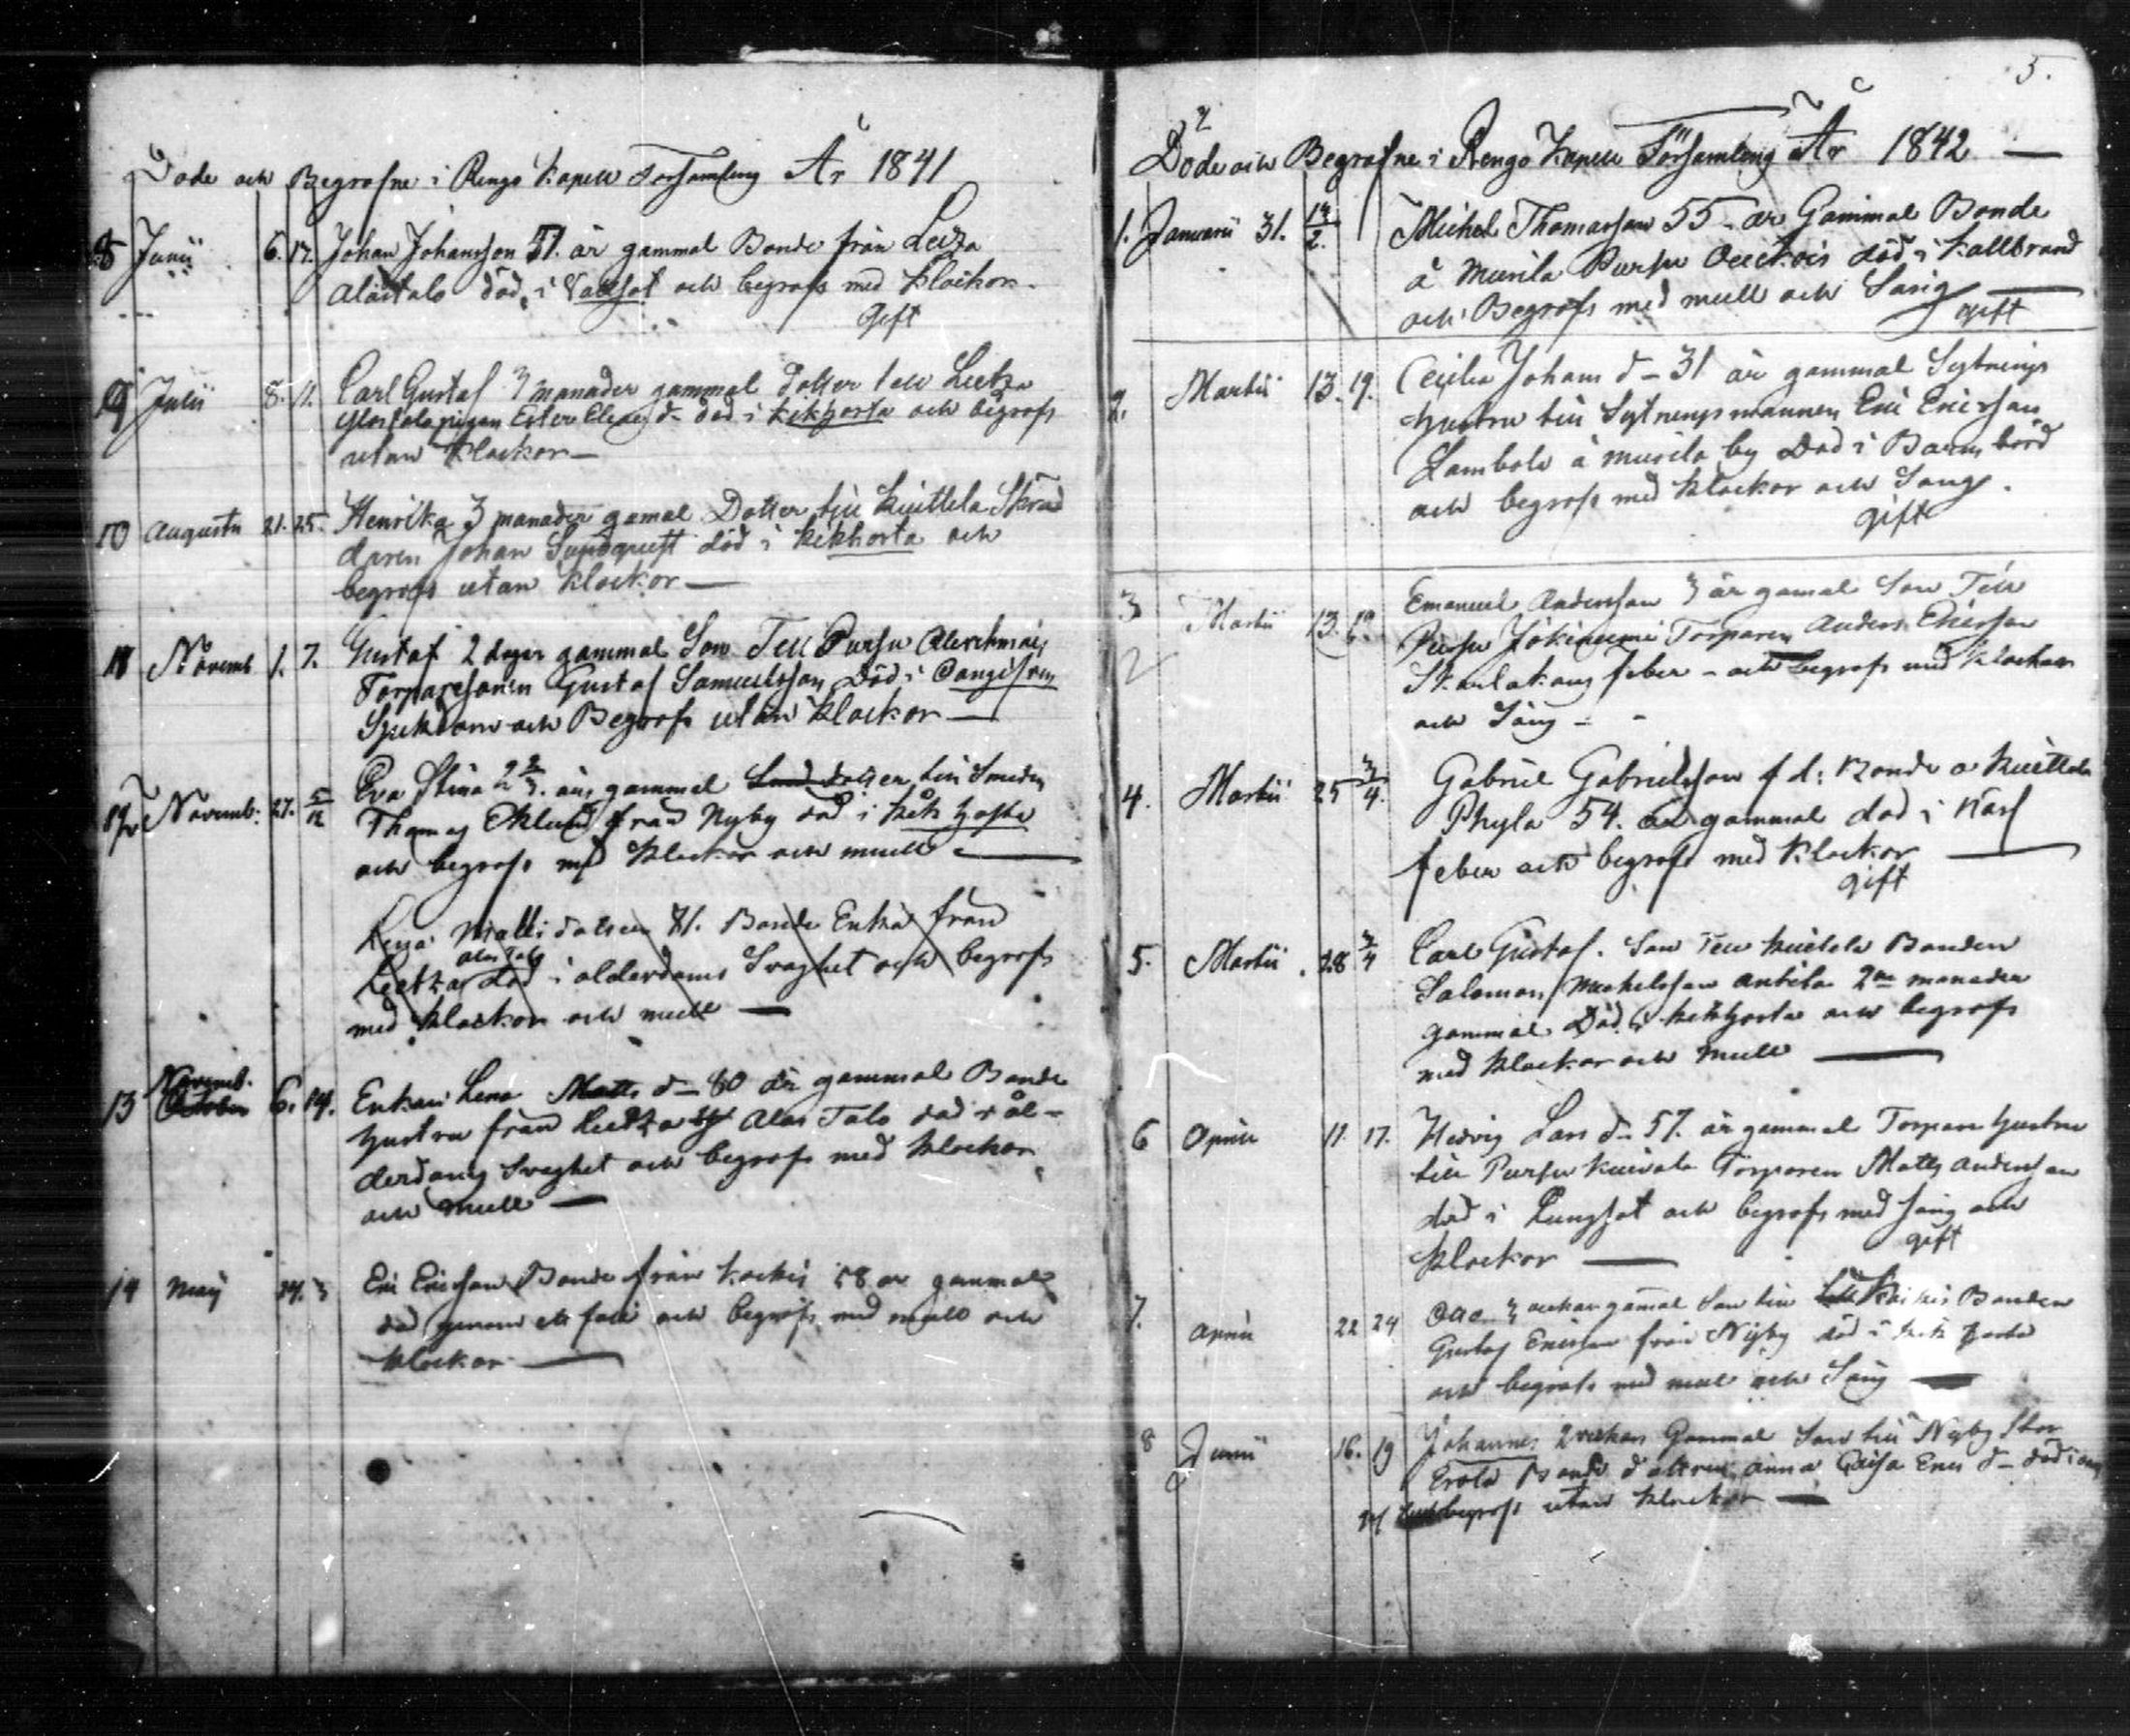 Döde och Begrafne i Rengo Kapell Församling År 1841
8 Junii 6. 17. Johan Johansson 51. år gammal Bonde från Leitza
Alastalo död i och begrafs med Klockor.
Gift
9 Julii 8. 11. Carl Gustaf 3 månader gammal dotter till Leitza
död i kikhosta och begrafs
utan Klockor —
10 Augusti 21. 25. Henrika 3 månader gamal Dotter till Kuittila Skräd
daren Johan Sundquist död i kikhosta och
begrafs utan klockor —
11 Novemb 1. 7. Gustaf 2 dagar gammal Son Till Pursu
Torparesonen Gustaf Samuelsson Död i
Sjukdom och Begrafs utan klockor —
12 Novemb: 27. 5/12 Eva Stina 2 år gammal dotter till Smeden
Thomas Eklund från Nyby död i kik hosta
och begrafs med klockor och mull —
Lena Matts dotter 71. Bonde Enka från
Alas Talo
Leitza död i olderdoms Svaghet och begrafs
med klockor och mull —
Novemb.
13 October 6. 14. Enkan Lena Matts d– 80 år gammal Bonde
hustru från Leitza by Alas Talo död i ål-
derdoms Svaghet och begrafs med klockor
och mull —
14 Maij Eric Ericsson Bonde från Kackis 58 år gammal
död genom ett fall och begrafs med mull och
klockor —
5.
Döde och Begrafne i Rengo Kapell Församling År 1842 —
1. Januarii 31. 14/2. Michel Thomasson 55 år Gammal Bonde
å Murila Pursu död i Kallbrand
och Begrafs med mull och Sång —
gift
2. Martii 13. 19. Cecilia Johans d– 31 år gammal Sytnings
hustru till Sytningsmannen Eric Ericsson
Lambola å Murila by Död i Barns börd
och begrafs med klockor och Sång.
gift
3 Martii 13. 19. Emanuel Andersson 3 år gamal Son Till
Pursu Jokiniemi Torparen Anders Ericsson
Skarlakans feber – och begrafs med klockor
och Sång –
4. Martii 25 3/4. Gabriel Gabrielsson f d: Bonde å Kuittila
Phyla 54. år gammal död i
feber och begrafs med klockor —
gift
5. Martii 28 3/4 Carl Gustaf. Son Till Kuittila Bonden
Salomon Michelsson Antila 2ne månader
gammal Död i kikhosta och begrafs
med klockor och mull —
6 April 11. 17. Hedvig Lars d– 57. år gammal Torpare hustru
till Pursu Torparen Matts Andersson
död i Lungsot och begrafs med sång och
klockor —
gift
7. April 22 24 3 veckor gamal Son till Bonden
Gustaf Ericsson från Nyby död i kik hosta
och begrafs med mull och Sång —
8 Junii 16. 19 Johannes 2 veckor Gammal Son till Nyby Stor
Erola Bonde dottren Anna Caisa Erics d– död i
begrafs utan klockor —